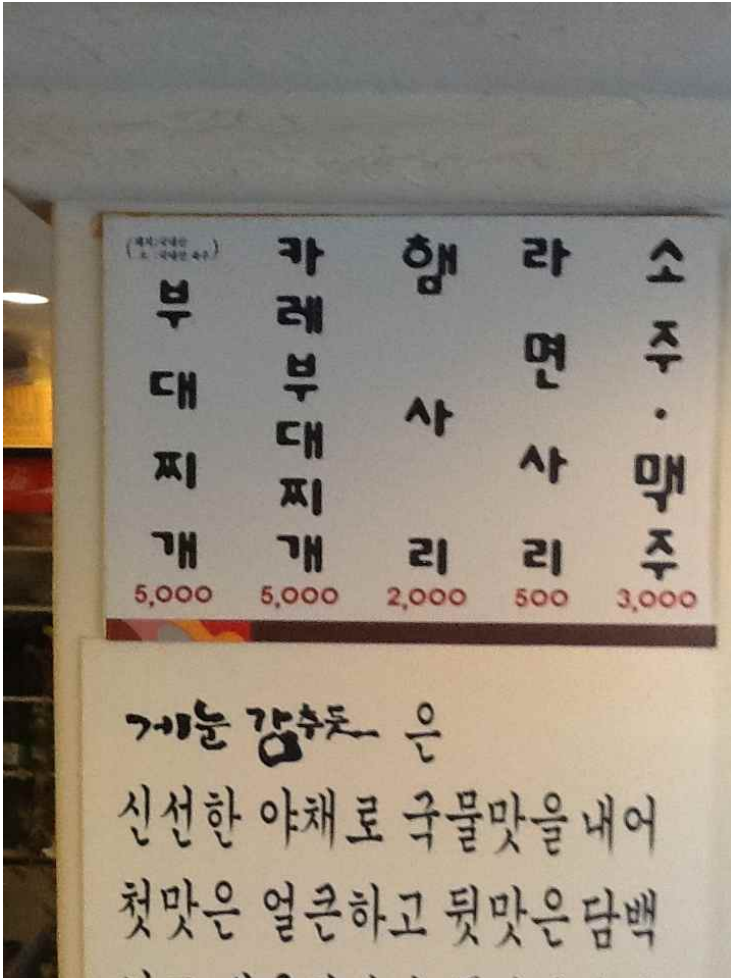 (돼지:국내산
소 :국내산 육우)
부대찌개
5,000
카레부대찌개
5,000
햄사리
2,000
라면사리
500
소주·맥주
3,000
게눈 감추듯... 은
신선한 야채로 국물맛을 내어
첫맛은 얼큰하고 뒷맛은 담백